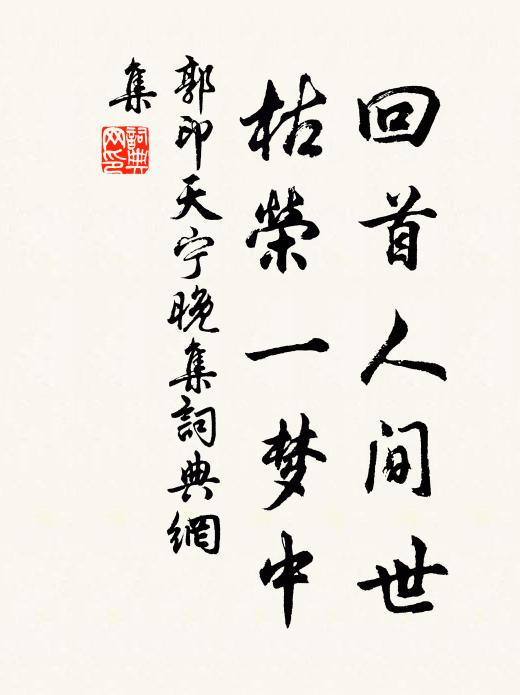 回首人间世
枯榮一梦中
郭印天宁晚集詞典網
集
詞典网印